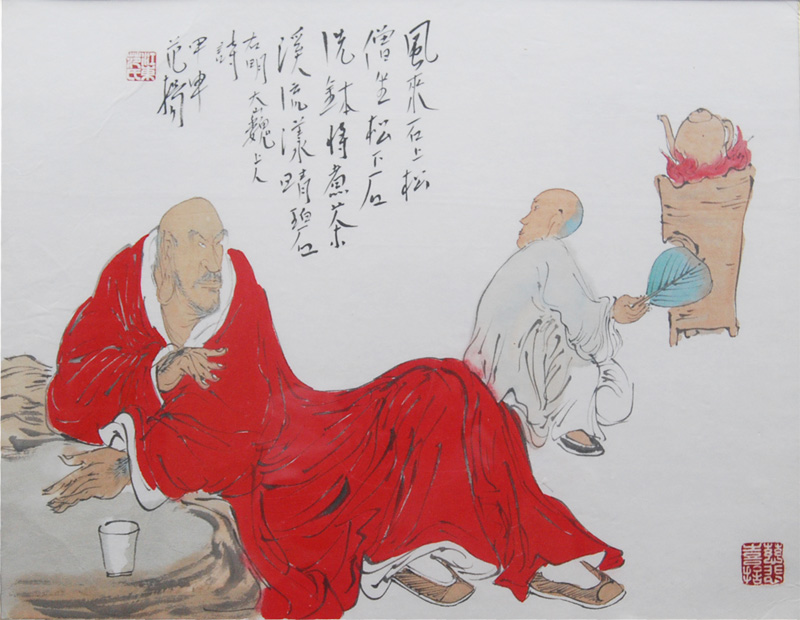 風來石上松
僧坐松下石
洗鉢將煮茶
溪流漾晴碧
右明大巍上人
詩
甲申
范揚
慈悲
喜捨